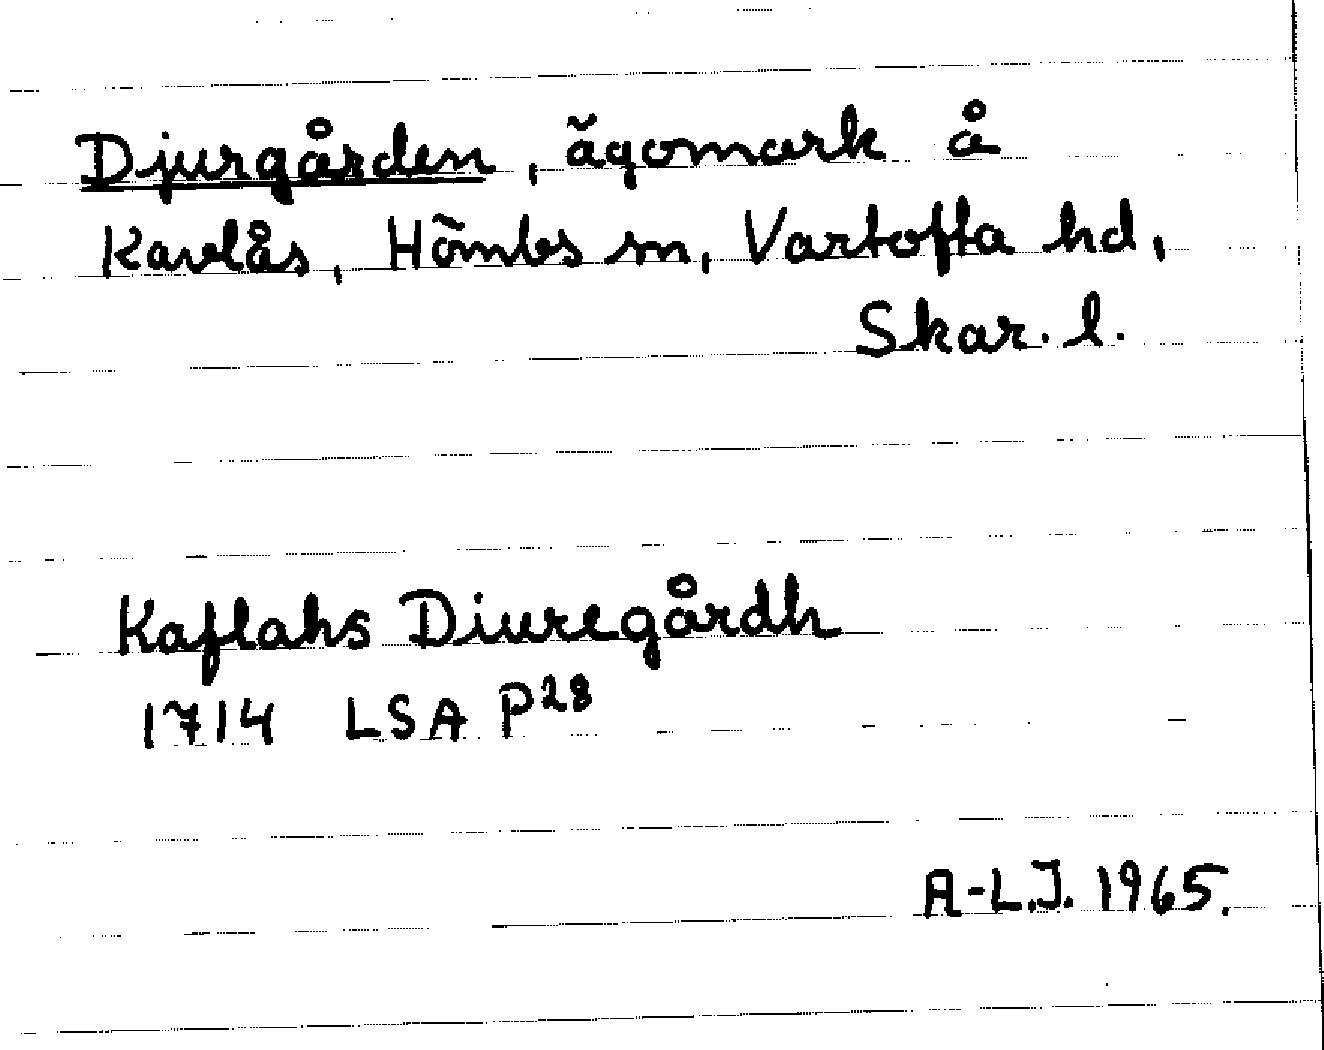 Djurgården, ägomark å
Kavlås, Hömbs sn, Vartofta hd,
Skar. l.
Kaflahs Diuregårdh
1714 LSA P28
A-L.J. 1965.